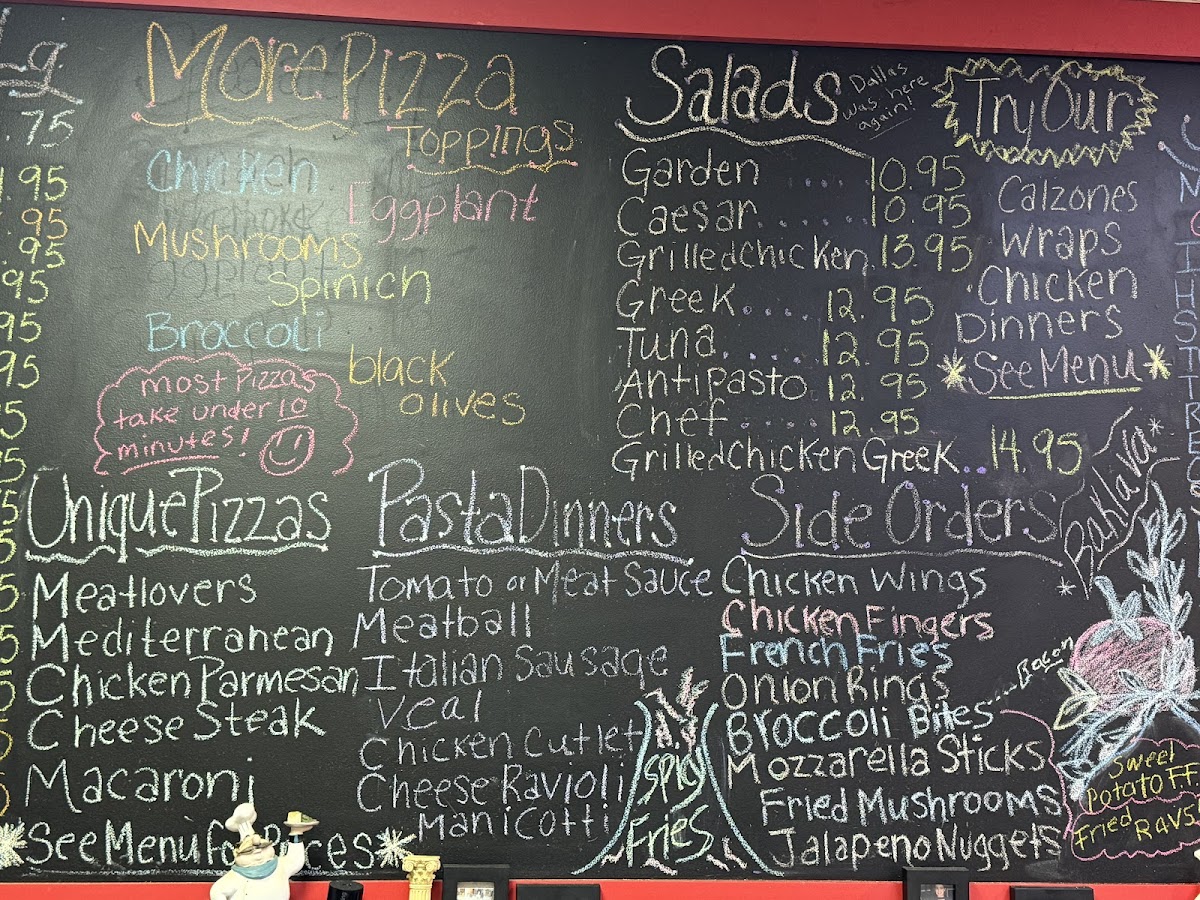 Lg.
.75
.95
.95
.95
.95
95
95
5
5
5
5
5
5
5
More Pizza
Toppings
Chicken
Eggplant
Mushrooms
Spinich
Broccoli
black
olives
most Pizzas
take under 10
minutes!
Salads
Dallas
was here
again!
Garden .... 10.95
Caesar....... 10.95
Grilledchicken.13.95
Greek..... 12.95
Tuna...... 12.95
Antipasto. 12.95
Chef ..... 12.95
Grilled Chicken Greek.. 14.95
Try Our
Calzones
Wraps
Chicken
Dinners
*See Menu*
Unique Pizzas
Meatlovers
Mediterranean
Chicken Parmesan
Cheese Steak
Macaroni
*See Menu For Prices*
Pasta Dinners
Tomato or Meat Sauce
Meatball
Italian Sausage
Veal
Chicken Cutlet
Cheese Ravioli
Manicotti
N.Y.
Spicy
Fries
Side Orders
Chicken Wings
Chicken Fingers
French Fries
Onion Rings
Broccoli Bites
Bacon
Mozzarella Sticks
Fried Mushrooms
Jalapeno Nuggets
*Baklava*
Sweet
Potato FF
Fried
Ravs